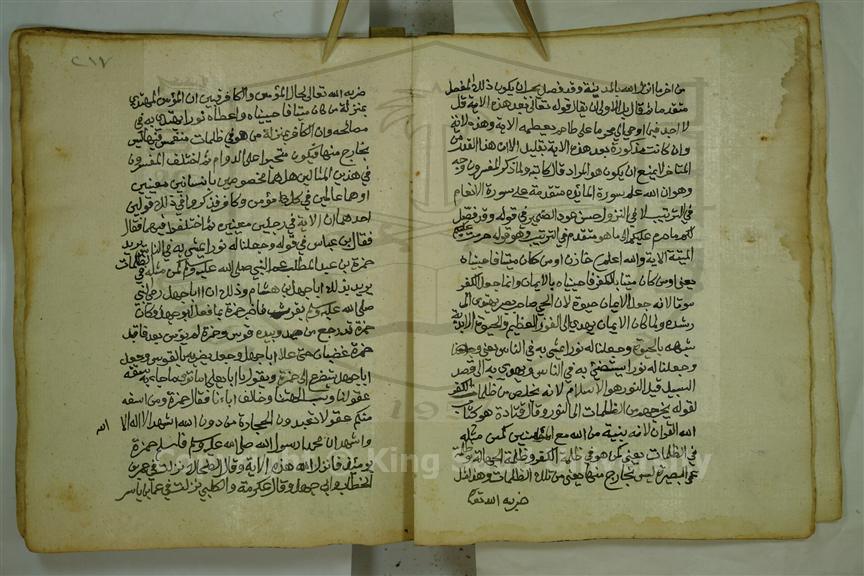 من اخر ما انزل الله بالمدينة وقد فصل يجب ان يكون ذلك المفصل
متقدما على هذه الآية
لا اجد فيما اوحي الي محرما على طاعم يطعمه الاية وهذه الاية
وان كانت مذكورة بعد هذه الاية بقليل الا ان هذا القدر من
المتاخر لا يمنع ان يكون هو المراد قال كاتبه ولما ذكر المفسرون وجه
وهو ان الله علم ان سورة المائدة متقدمة على سورة الانعام
في الترتيب لا في النزول حسن عود الضمير في قوله وقد فصل
لكم ما حرم عليكم الى ما هو متقدم في الترتيب وهو قوله حرمت عليكم
الميتة الاية والله اعلم خازن اومن كان ميتا فاحييناه
يعني اومن كان ميتا بالكفر فاحييناه بالايمان وانما جعل الكفر
موتا لانه جعل الايمان حيوة لان الحي صاحب بصر يهتدي به الى
رشده ولما كان الايمان يهدي الى الفوز العظيم والحيوة الابدية
شبهه بالحيوة وجعلنا له نورا يمشي به في الناس يعني
وجعلنا له نورا يستضئ به في الناس ويهتدي به الى قصد
السبيل قيل النور هو الاسلام لانه يخلص من ظلمات الكفر
لقوله يخرجهم من الظلمات الى النور وقال قتادة هو كتاب
الله القران لانه بينة من الله مع المؤمنين كمن مثله
في الظلمات يعني كمن هو في ظلمة الكفر وظلمة الجهالة وظلمة
عمى البصيرة ليس بخارج منها يعني من تلك الظلمات وهذا مثل
ضربه الله تعا
٢١٧
ضربه الله تعالى لحال المؤمن والكافر فبين ان المؤمن المهتدي
بمنزلة من كان ميتا فاحييناه واعطاه نورا يهتدي به في
مصالحه وان الكافر بمنزلة من هو في ظلمات منغمس فيها ليس
بخارج منها فيكون متحيرا على الدوام ثم اختلف المفسرون
في هذين المثالين هل هما مخصوصين بانسانين معينين
او هما عامين في كل مؤمن وكافر فذكروا في ذلك قولين
احدهما ان الاية في رجلين معينين ثم اختلفوا فيهما فقال
فقال ابن عباس في قوله وجعلنا له نورا يمشي به في الناس يريد
حمزة بن عبد المطلب عم النبي صلى الله عليه وسلم كمن مثله في الظلمات
يريد بذلك ابا جهل بن هشام وذلك ان ابا جهل رمى النبي
صلى الله عليه وسلم بفرث فاخبر حمزة بما فعل ابو جهل وكان
حمزة قد رجع من صيد وبيده قوس وحمزة لم يؤمن بعد فاقبل
حمزة غضبان حتى علا ابا جهل وجعل يضربه بالقوس وجعل
ابا جهل يتضرع الى حمزة ويقول يا ابا يعلى اما ترى ما جاء به سفه
عقولنا وسب الهتنا وخالف اباءنا فقال حمزة ومن اسفه
منكم عقولا تعبدون الحجارة من دون الله اشهد ان لا اله الا الله
واشهد ان محمدا رسول الله صلى الله عليه وسلم فاسلم حمزة
يومئذ فانزل الله هذه الاية وقال الضحاك نزلت في عمر بن
الخطاب وابي جهل وقال عكرمة والكلبي نزلت في عمار بن ياسر
Copyright © King Saud University